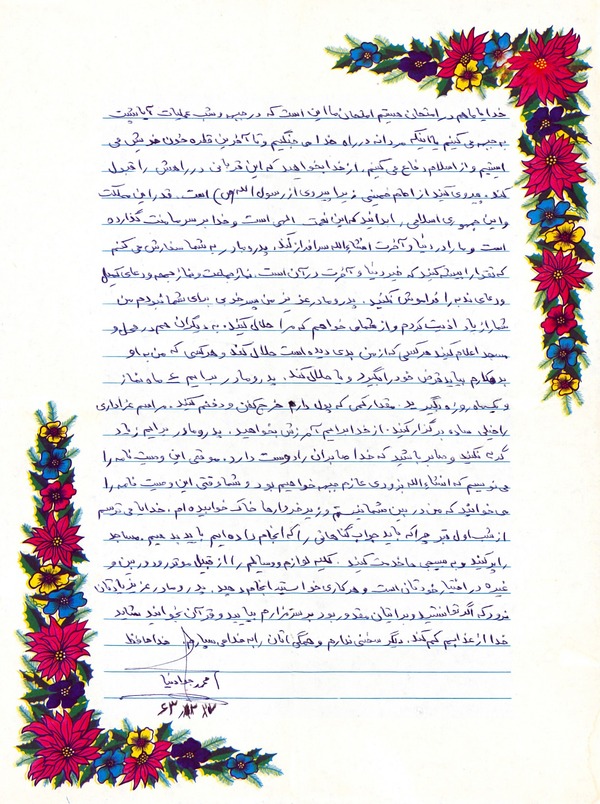 خدایا ما هم در امتحان هستیم امتحان ما این است که در جبهه و شب عملیات آیا پشت
به جبهه می کنیم یا اینکه مردانه در راه خدا می جنگیم و تا آخرین قطره خون خویش می
ایستیم و از اسلام دفاع می کنیم. از خدا بخواهید که این قربانی در راهش را قبول
کند. پیروی کنید از امام خمینی زیرا پیروی از رسول الله (ص) است. قدر این مملکت
و این جمهوری اسلامی را بدانید که این نعمت الهی است و خدا بر سر ما منت گذارده
است و ما را در دنیا و آخرت انشاءالله سرافراز کند. پدر و مادر به شما سفارش می کنم
که تقوا را پیشه کنید که خیر دنیا و آخرت در آن است. نماز جماعت و نماز جمعه و دعای کمیل
و دعای ندبه را فراموش نکنید. پدر و مادر عزیز من پسر خوبی برای شما نبودم من
شما را زیاد اذیت کردم و از شما می خواهم که مرا حلال کنید. به دیگران هم در محل و
مسجد اعلام کنید هر کسی که از من بدی دیده است حلال کند و هر کسی که من به او
بدهکارم بیاید قرض خود را بگیرد و یا حلال کند. پدر و مادر برایم ۶ ماه نماز
و یکماه روزه بگیرید. مقدار کمی که پول دارم خرج کفن و دفنم کنید. مراسم عزاداری
را خیلی ساده برگذار کنید. از خدا برایم آمرزش بخواهید. پدر و مادر برایم زیاد
گریه نکنید و صابر باشید که خدا صابران را دوست دارد. موقعی این وصیت نامه را
می نویسم که انشاءالله بزودی عازم جبهه خواهیم بود و شما وقتی این وصیت نامه را
می خوانید که من در بین شما نیستم و زیر خروارها خاک خوابیده ام. خدایا می ترسم
از شب اول قبر چرا که باید جواب گناهانی را که انجام داده ایم باید بدهیم. مساجد
را پر کنید و به بسیجی ها خدمت کنید. کلیه لوازم و وسایلم را از قبیل موتور و دوربین و
غیره در اختیار خودتان است و هر کاری خواستید انجام دهید. پدر و مادر عزیز یادتان
نرود که اگر توانستید و برایتان مقدور بود بر سر مزارم بیایید و قرآن بخوانید شاید
خدا از عذابم کم کند. دیگر سخنی ندارم و همگی اتان را به خدا می سپارم. خداحافظ